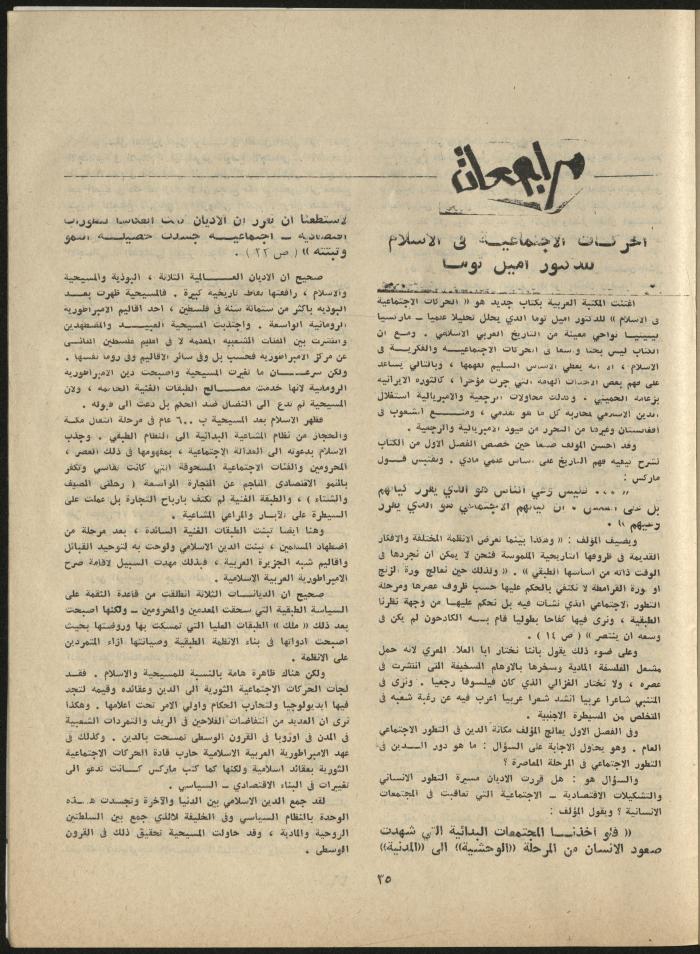 مراجعات
الحركات الاجتماعية في الاسلام
للدكتور اميل توما
اغتنت المكتبة العربية بكتاب جديد هو « الحركات الاجتماعية
في الاسلام » للدكتور اميل توما الذي يحلل تحليلا علميا ـ ماركسيا
نواحي معينة من التاريخ العربي الاسلامي . ومع ان
الكتاب ليس بحثا واسعا في الحركات الاجتماعيـة والفكرية في
الاسلام ، الا انه يعطي الاساس السليم لفهمها ، وبالتالي يساعد
على فهم بعض الاحداث الهامة التي جرت مؤخرا ، كالثورة الايرانية
بزعامة الخميني . وكذلك محاولات الرجعية والامبريالية استغلال
الدين الاسلامي لمحاربة كل ما هو تقدمي ، ومنـع الشعوب في
افغانستان وغيرها من التحرر من قيود الامبريالية والرجعية .
وقد احسن المؤلف صنعا حين خصص الفصل الاول من الكتاب
لشرح كيفية فهم التاريخ على اساس علمي مادي . ونقتبس قـول
ماركس :
« ... فليس وعي الناس هو الذي يقرر كيانهم
بل على العكس ، ان كيانهم الاجتماعي هو الذي يقرر
وعيهم » .
ويضيف المؤلف : « وهكذا بينما نعرض الانظمة المختلفة والافكار
القديمة في ظروفها التاريخية الملموسة فنحن لا يمكن ان نجردها في
الوقت ذاته من اساسها الطبقي » . « ولذلك حين نعالج ثورة الزنج
او ثورة القرامطة لا نكتفي بالحكم عليها حسب ظروف عصرها ومرحلة
التطور الاجتماعي الذي نشأت فيه بل نحكم عليهـا من وجهة نظرنا
الطبقية ، ونرى فيها كفاحا بطوليا قام بـه الكادحون لم يكن في
وسعه ان ينتصر » ( ص ١٤ ) .
وعلى ضوء ذلك يقول باننا نختار ابا العلاء المعري لانه حمل
مشعل الفلسفة المادية وسخرها بالاوهام السخيفة التي انتشرت في
عصره ، ولا نختار الغزالي الذي كان فيلسوفا رجعيا . ونرى في
المتنبي شاعرا عربيا انشد شعرا عربيا اعرب فيه عن رغبة شعبه في
التخلص من السيطرة الاجنبية .
وفي الفصل الاول يعالج المؤلف مكانة الدين في التطور الاجتماعي
العام . وهو يحاول الاجابة على السؤال : ما هو دور الـدين في
التطور الاجتماعي في المرحلة المعاصرة ؟
والسؤال هو : هل قررت الاديان مسيرة التطور الانساني
والتشكيلات الاقتصادية ـ الاجتماعية التي تعاقبت في المجتمعات
الانسانية ؟ ويقول المؤلف :
« فلو اخذنـا المجتمعات البدائية التي شهدت
صعود الانسان من المرحلة «الوحشية» الى «المدنية»
لاستطعنا ان نقرر ان الاديان كانت انعكاسا لتطورات
اقتصادية ـ اجتماعيـة جسدت حصيلـة النمو
وثبتته » ( ص ٢٢ ) .
صحيح ان الاديان العـالمية الثلاثة ، البوذية والمسيحية
والاسلام ، رافقتها نقاط تاريخية كبيرة . فالمسيحية ظهرت بعـد
البوذية باكثر من ستمائة سنة في فلسطين ، احد اقاليم الامبراطورية
الرومانية الواسعة . واجتذبت المسيحية العبيـد والمضطهدين
وانتشرت بين الفئات الشعبية المعدمة لا في اقليم فلسطين النائي
عن مركز الامبراطورية فحسب بل وفي سائر الاقاليم وفي روما نفسها .
ولكن سرعـان ما تغيرت المسيحية واصبحت دين الامبراطورية
الرومانية لانها خدمت مصـالح الطبقات الغنية الحاكمة ، ولان
المسيحية لم تدع الى النضال ضد الحكم بل دعت الى قبوله .
فظهر الاسلام بعد المسيحية بـ ٦٠٠ عام في مرحلة انتقال مكة
والحجاز من نظام المشاعية البدائية الى النظام الطبقي . وجذب
الاسلام بدعوته الى العدالة الاجتماعية ، بمفهومها في ذلك العصر ،
المحرومين والفئات الاجتماعية المسحوقة التي كانت تقاسي وتكفر
بالنمو الاقتصادي الناجم عن التجارة الواسعة ( رحلتي الصيف
والشتاء ) ، والطبقة الغنية لم تكتف بارباح التجارة بل عملت على
السيطرة على الآبار والمراعي المشاعية .
وهنا ايضا تبنت الطبقات الغنية السائدة ، بعد مرحلة من
اضطهاد المسلمين ، تبنت الدين الاسلامي ولوحت به لتوحيد القبائل
واقاليم شبه الجزيرة العربية ، فبذلك مهدت السبيل لاقامة صرح
الامبراطورية العربية الاسلامية .
صحيح ان الديانـات الثلاثة انطلقت من قاعدة النقمة على
السياسة الطبقية التي سحقت المعدمين والمحرومين ـ ولكنها اصبحت
بعد ذلك « ملك » الطبقات العليا التي تمسكت بها وروضتها بحيث
اصبحت ادواتها في بناء الانظمة الطبقية وصيانتها ازاء المتمردين
على الانظمة .
ولكن هناك ظاهرة هامة بالنسبة للمسيحية والاسلام . فقـد
لجأت الحركات الاجتماعية الثورية الى الدين وعقائده وقيمه لتجد
فيها ايديولوجيا ولتحارب الحكام واولي الامر تحت اعلامها . وهكذا
نرى ان العديد من انتفاضات الفلاحين في الريف والتمردات الشعبية
في المدن في اوروبا في القرون الوسطى تمسحت بالدين . وكذلك في
عهد الامبراطورية العربية الاسلامية حارب قادة الحركات الاجتماعية
الثورية بعقائد اسلامية ولكنها كما كتب ماركس كـانت تدعو الى
تغييرات في البناء الاقتصادي ـ السياسي .
لقد جمع الدين الاسلامي بين الدنيا والآخرة وتجسدت هـذه
الوحدة بالنظام السياسي وفي الخليفة فالذي جمع بين السلطتين
الروحية والمادية ، وقد حاولت المسيحية تحقيق ذلك في القرون
الوسطى .
٣٥